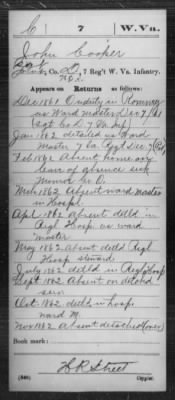 C 7 W. Va.
John Cooper
Sgt, Co. D, 7 Reg't W. Va. Infantry.
Appears on Returns as follows:
Dec 1861 On duty in Romney
as Ward Master Dec 7/61
(Sgt Co. D 7 Va Inf)
Jan 1862 detailed as Ward
Master 7 Va Regt Dec 7/61
Feb 1862 Absent home on
leave of absence sick
Monroe Co. O
Mch 1862 Absent ward master
in Hospl
Apl 1862 Absent detld in
Regl Hosp. as ward
master
May 1862 Absent detld Regl
Hosp steward
July 1862 detld in Regl Hosp
Sept 1862 Absent on detchd
serv
Oct 1862 detld in hosp.
ward M.
Nov 1862 Absent detached
Book mark:
H R Street
(546) Copyist.